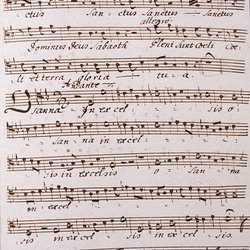 ctus Sanctus Sanctus
allegro
Dominus Deus Sabaoth Pleni sunt Celi Coe
li et terra gloria tua
Andante
Osanna In excelsis o
sanna in excel
sis in excelsis o sanna
in excel
sis in excelsis